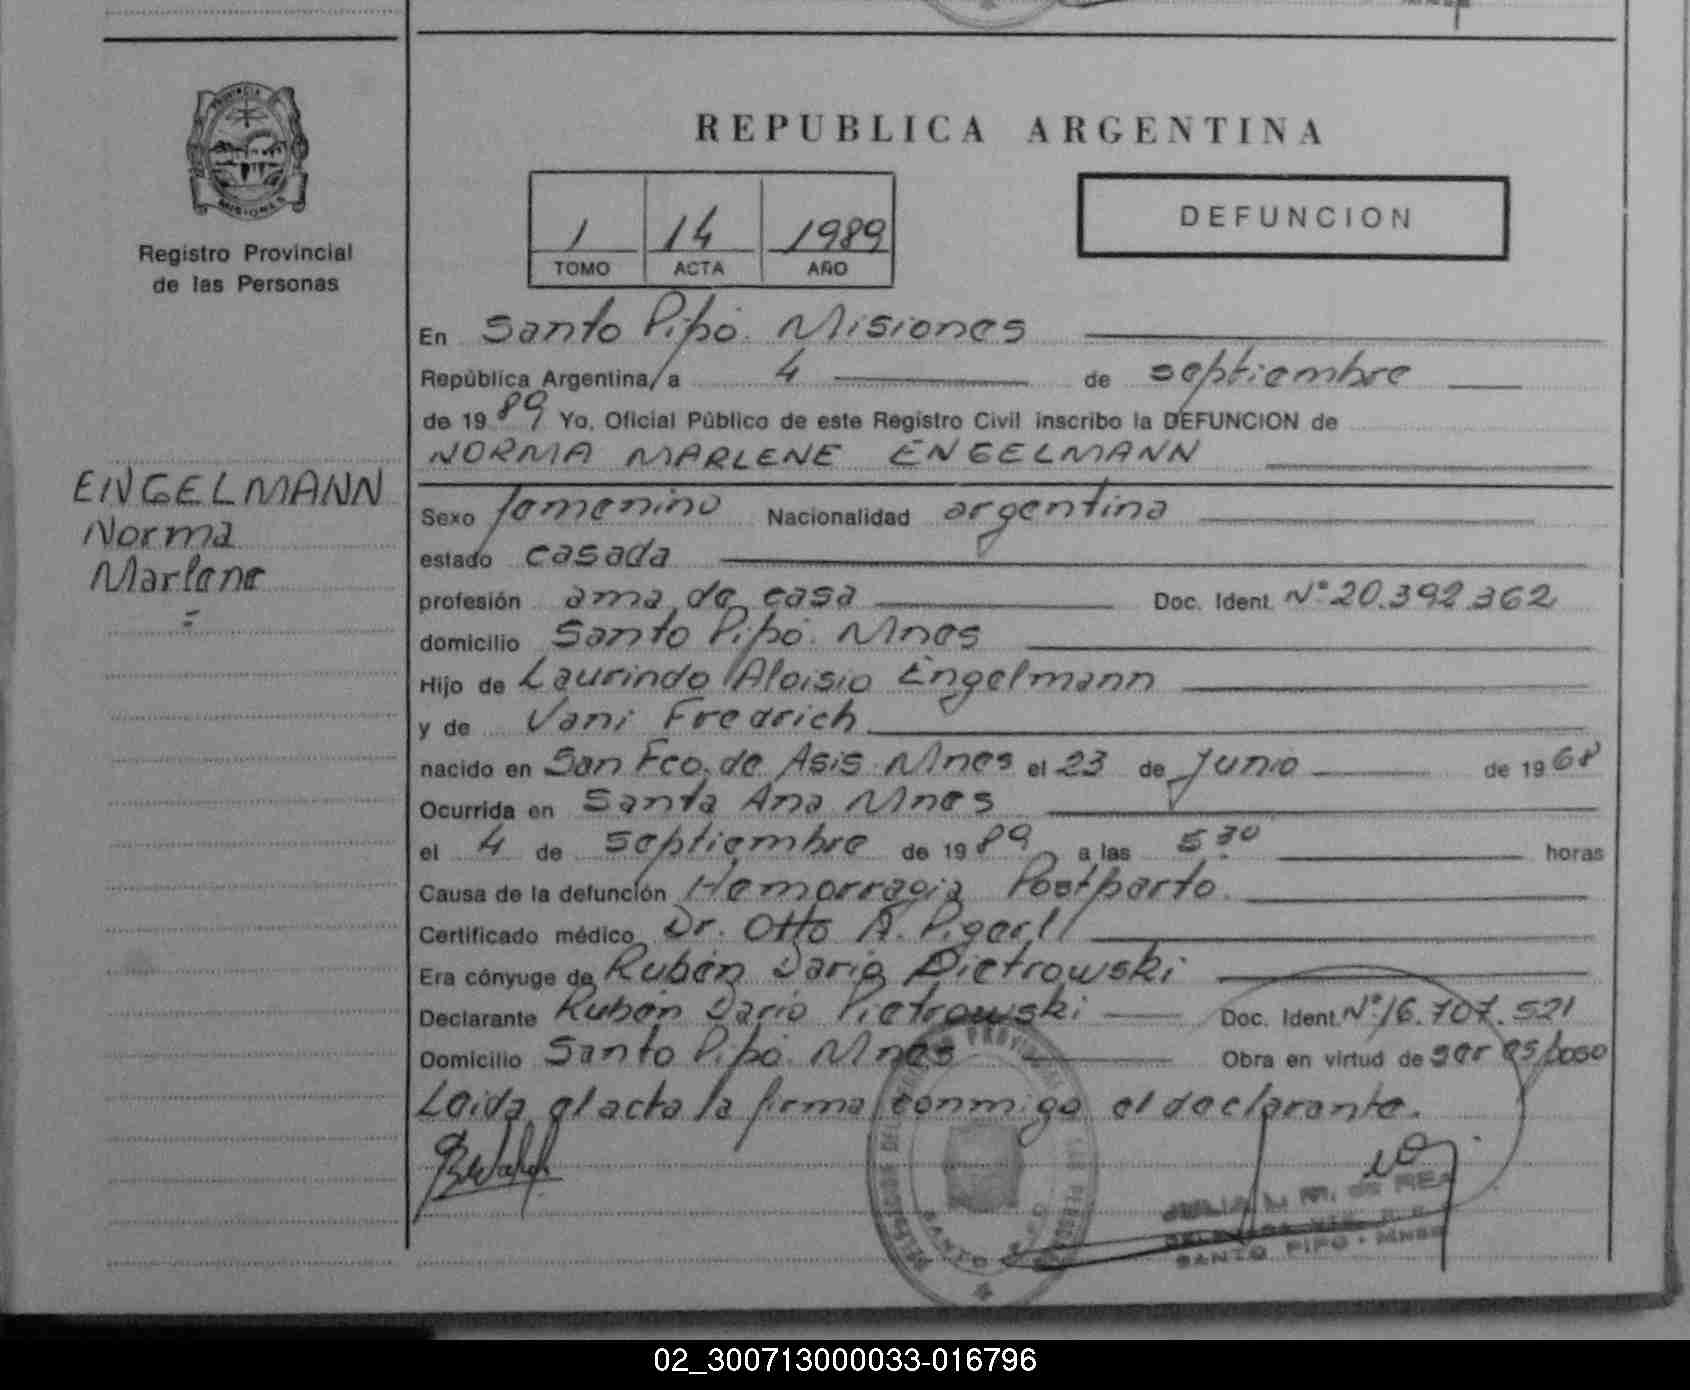 PROVINCIA DE
MISIONES
Registro Provincial
de las Personas
ENGELMANN
Norma
Marlene
REPUBLICA ARGENTINA
1 14 1989
TOMO ACTA AÑO
DEFUNCION
En Santo Pipó. Misiones
República Argentina, a 4 de septiembre
de 1989 Yo, Oficial Público de este Registro Civil inscribo la DEFUNCION de
NORMA MARLENE ENGELMANN
Sexo femenino Nacionalidad argentina
estado casada
profesión ama de casa Doc. Ident. Nº 20.392.362
domicilio Santo Pipó. Mnes
Hijo de Laurindo Aloisio Engelmann
y de Vani Fredrich
nacido en San Fco. de Asis Mnes el 23 de Junio de 1968
Ocurrida en Santa Ana Mnes
el 4 de septiembre de 1989 a las 5.30 horas
Causa de la defunción Hemorragia Postparto.
Certificado médico Dr. Otto A. Pigerl
Era cónyuge de Rubén Darío Pietrowski
Declarante Rubén Darío Pietrowski Doc. Ident. Nº 16.707.521
Domicilio Santo Pipó. Mnes Obra en virtud de ser esposo
Leida el acta la firma conmigo el declarante.
JULIA L. M. de REA
SANTO PIPO - MNES
02_300713000033-016796